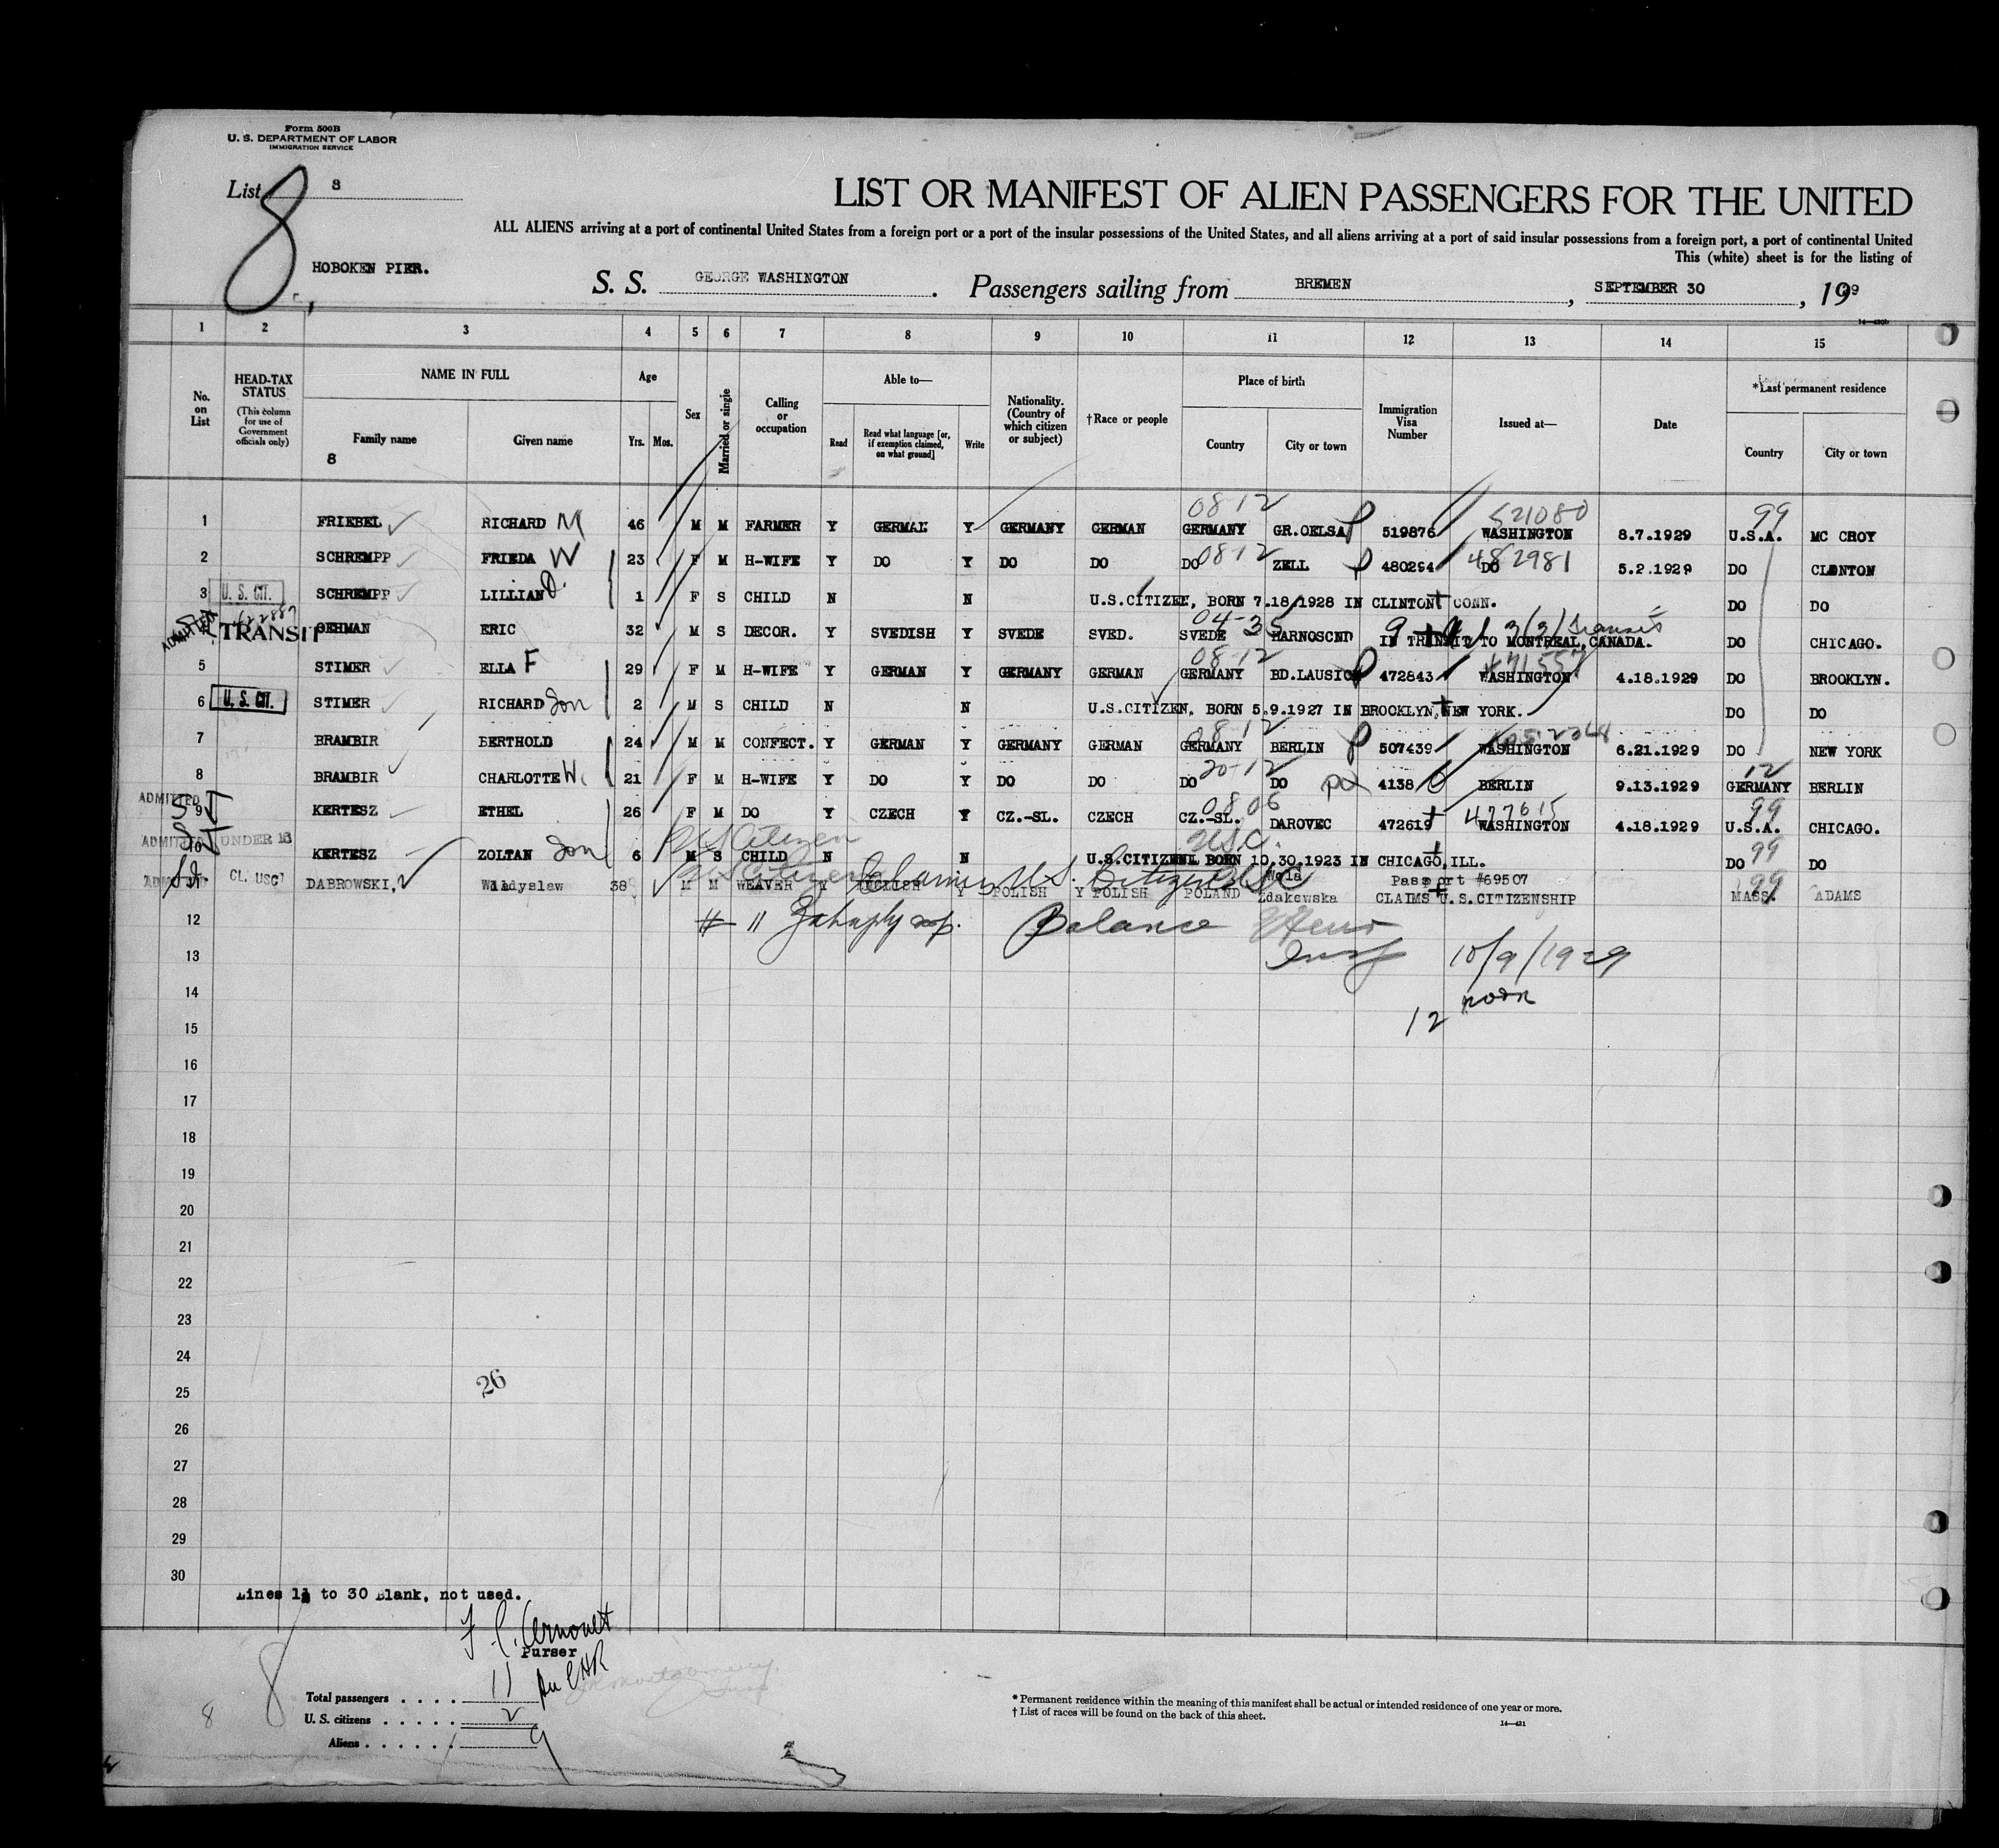 Form 500B
U. S. DEPARTMENT OF LABOR
IMMIGRATION SERVICE
List 8
8
LIST OR MANIFEST OF ALIEN PASSENGERS FOR THE UNITED
ALL ALIENS arriving at a port of continental United States from a foreign port or a port of the insular possessions of the United States, and all aliens arriving at a port of said insular possessions from a foreign port, a port of continental United
This (white) sheet is for the listing of
HOBOKEN PIER.
S. S. GEORGE WASHINGTON. Passengers sailing from BREMEN, SEPTEMBER 30, 19
14—430b
1 2 3 4 5 6 7 8 9 10 11 12 13 14 15
No. on List
HEAD-TAX STATUS (This column for use of Government officials only)
NAME IN FULL
Family name
Given name
8
Age
Yrs. Mos.
Sex
Married or single
Calling or occupation
Able to—
Read
Read what language [or, if exemption claimed, on what ground]
Write
Nationality. (Country of which citizen or subject)
†Race or people
Place of birth
Country
City or town
Immigration Visa Number
Issued at—
Date
*Last permanent residence
Country
City or town
08-12 521080 99
1 FRIEBEL RICHARD M 46 M M FARMER Y GERMAN Y GERMANY GERMAN GERMANY GR.OELSA 519876 WASHINGTON 8.7.1929 U.S.A. MC CROY
2 SCHREMPP FRIEDA W 23 F M H-WIFE Y DO Y DO DO DO 08-12 ZELL 480294 DO 482981 5.2.1929 DO CLINTON
3 U. S. CIT. SCHREMPP LILLIAN D. 1 F S CHILD N N U.S.CITIZEN, BORN 7.18.1928 IN CLINTON CONN. DO DO
ADMITTED TRANSIT OEHMAN ERIC 32 M S DECOR. Y SVEDISH Y SVEDE SVED. SVEDE 04-35 HARNOSCND IN TRANSIT TO MONTREAL, CANADA. 3(3) transit DO CHICAGO.
08-12
5 STIMER ELLA F 29 F M H-WIFE Y GERMAN Y GERMANY GERMAN GERMANY BD.LAUSICH 472843 WASHINGTON 4.18.1929 DO BROOKLYN.
6 U. S. CIT. STIMER RICHARD Son 2 M S CHILD N N U.S.CITIZEN, BORN 5.9.1927 IN BROOKLYN, NEW YORK. DO DO
08-12
7 BRAMBIR BERTHOLD 24 M M CONFECT. Y GERMAN Y GERMANY GERMAN GERMANY BERLIN 507439 WASHINGTON 6.21.1929 DO NEW YORK
20-12 12
8 BRAMBIR CHARLOTTE W. 21 F M H-WIFE Y DO Y DO DO DO DO 4138 BERLIN 9.13.1929 GERMANY BERLIN
0806 477615 99
ADMITTED 9 KERTESZ ETHEL 26 F M DO Y CZECH Y CZ.-SL. CZECH CZ.-SL. DAROVEC 472619 WASHINGTON 4.18.1929 U.S.A. CHICAGO.
US Citizen USC.
ADMITTED 10 UNDER 16 KERTESZ ZOLTAN Son 6 M S CHILD N N U.S.CITIZEN BORN 10.30.1923 IN CHICAGO, ILL. DO 99 DO
US Citizen Claims U.S. Citizen USC
ADMITTED CL. USC DABROWSKI, Wladyslaw 38 M M WEAVER Y ENGLISH Y POLISH Y POLISH POLAND Wola Zdakewska Passport #69507 CLAIMS U.S.CITIZENSHIP MASS. 99 ADAMS
12 # 11 Balance
13 Insp 10/9/1929
14 noon
15 12
16
17
18
19
20
21
22
23
24
25 26
26
27
28
29
30
Lines 12 to 30 Blank, not used.
Purser
Total passengers . . . . 11
U. S. citizens . . . . . 2
Aliens . . . . . . 9
8
8
* Permanent residence within the meaning of this manifest shall be actual or intended residence of one year or more.
† List of races will be found on the back of this sheet.
14—431